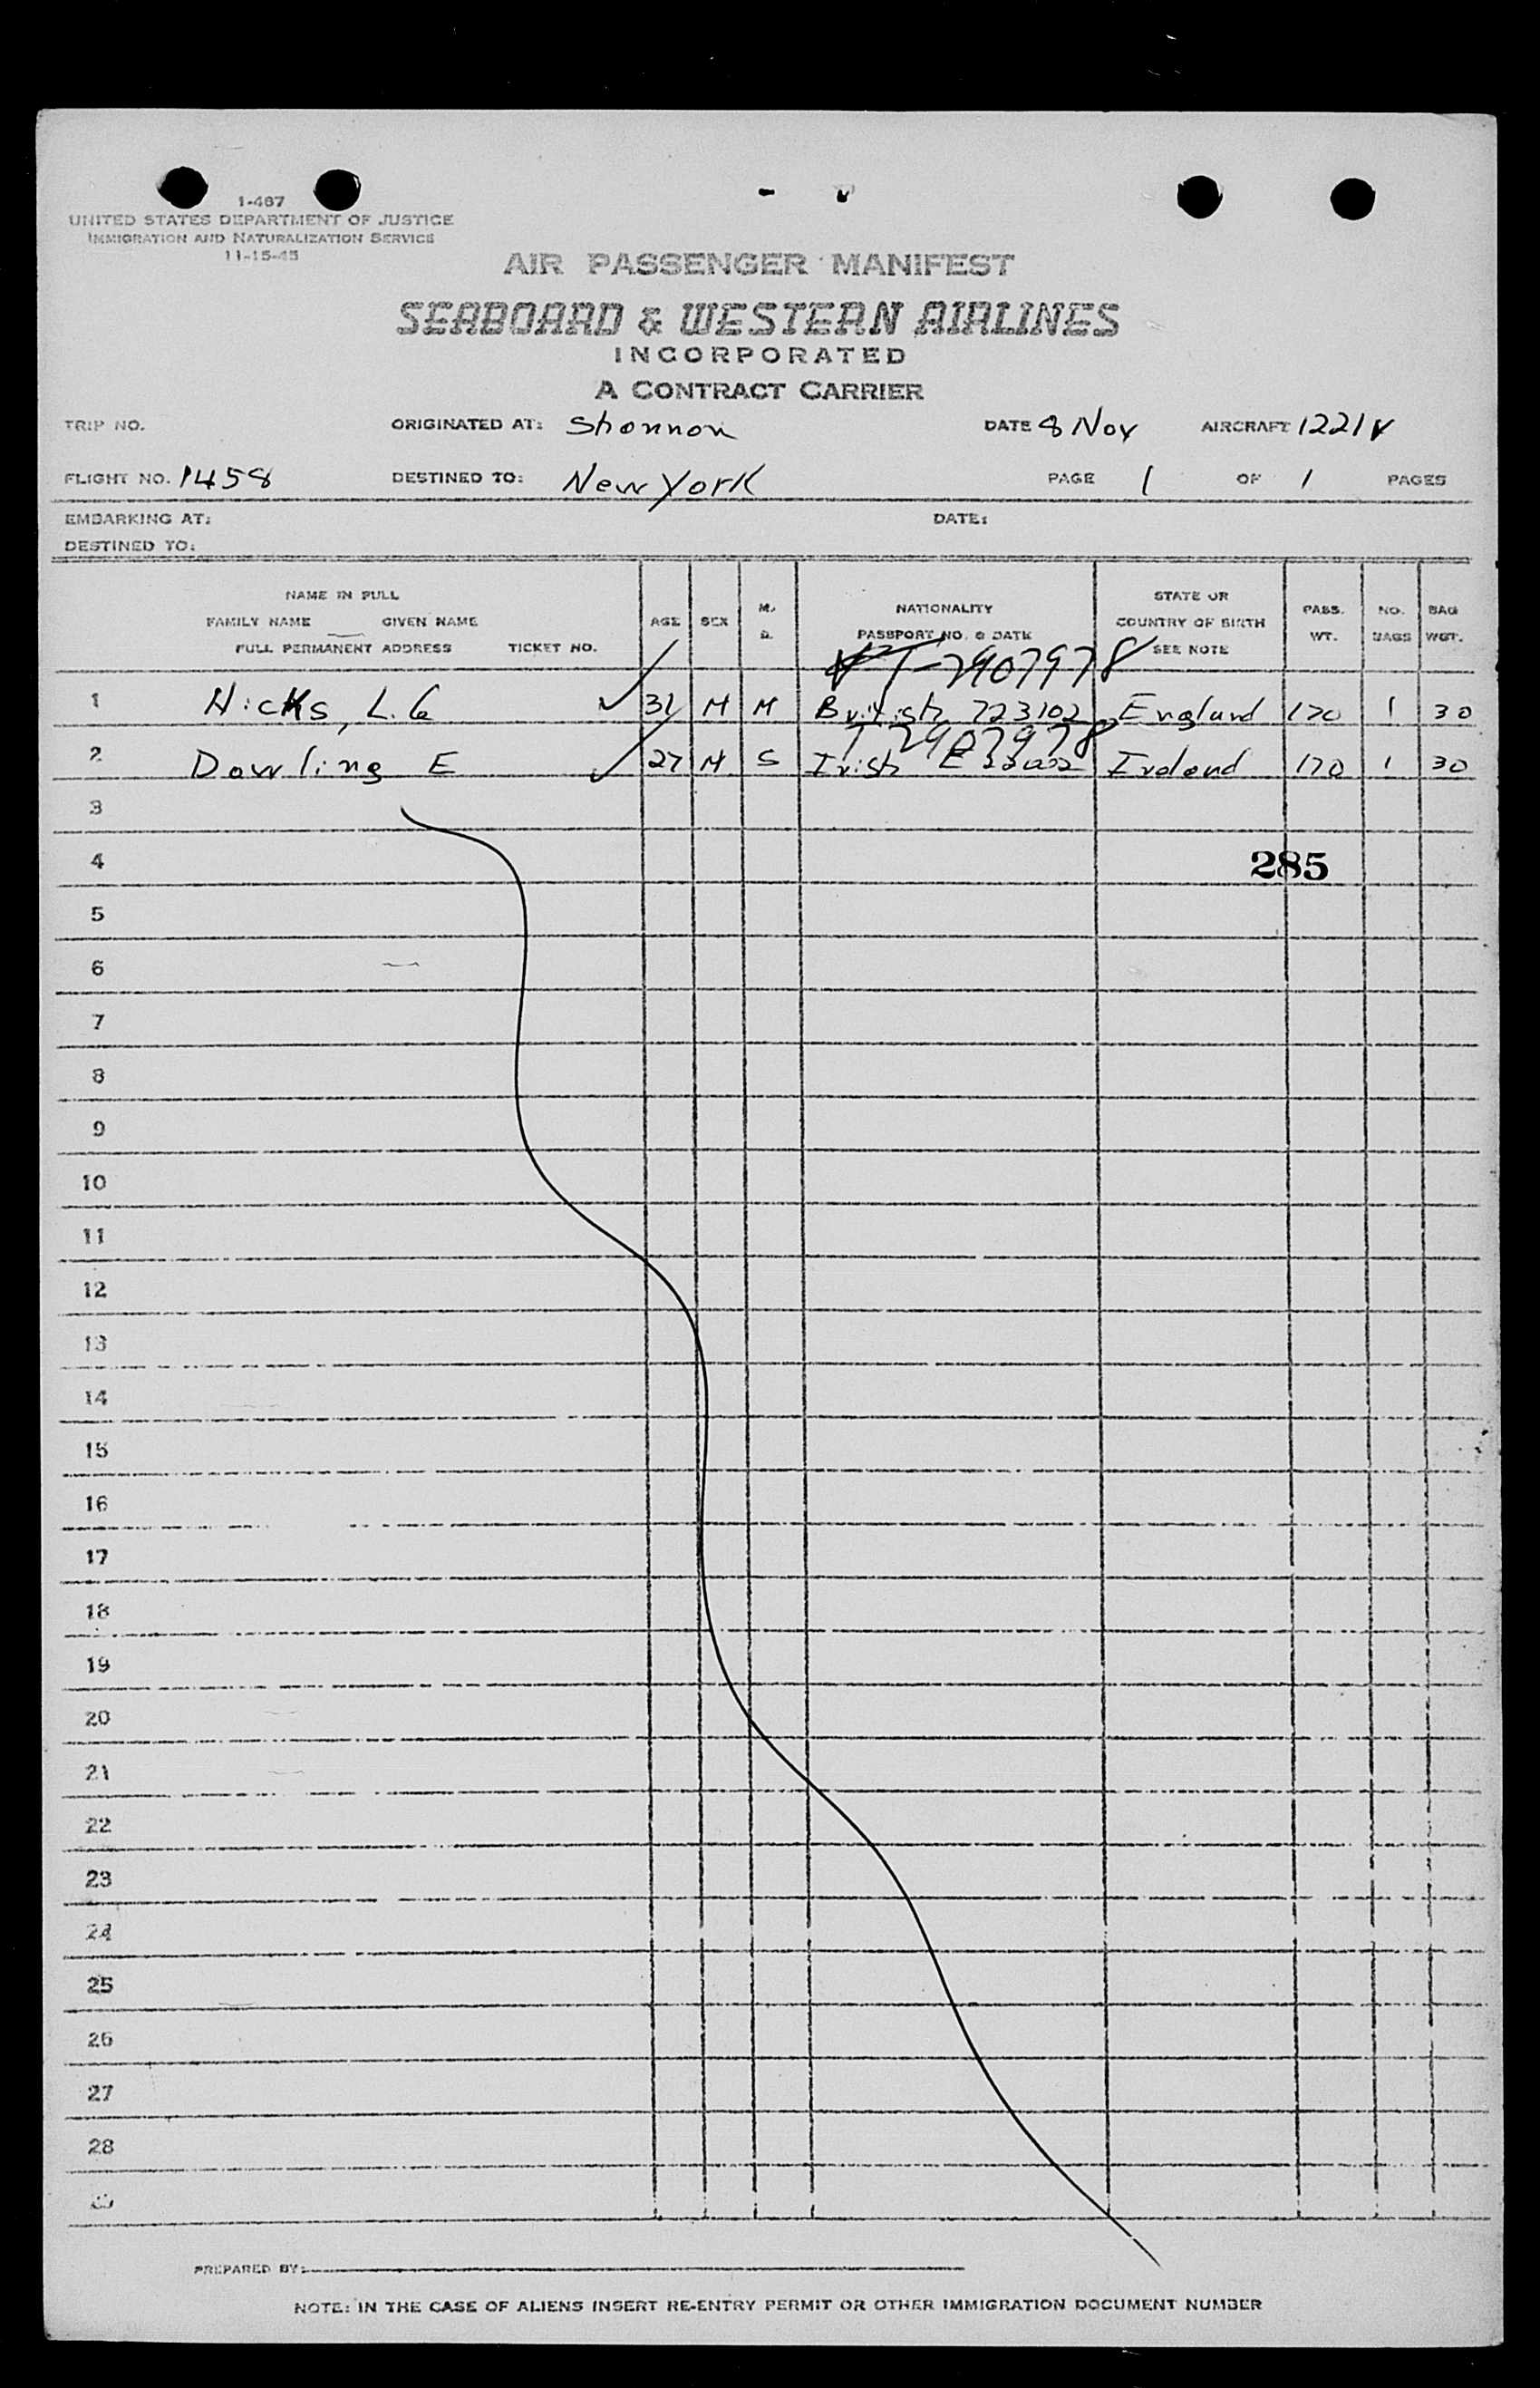 1-467
UNITED STATES DEPARTMENT OF JUSTICE
IMMIGRATION AND NATURALIZATION SERVICE
11-15-45
AIR PASSENGER MANIFEST
SEABOARD & WESTERN AIRLINES
INCORPORATED
A CONTRACT CARRIER
TRIP NO. ORIGINATED AT: Shannon DATE 8 Nov AIRCRAFT 1221V
FLIGHT NO. 1458 DESTINED TO: New York PAGE 1 OF 1 PAGES
EMBARKING AT: DATE:
DESTINED TO:
NAME IN FULL
FAMILY NAME GIVEN NAME
FULL PERMANENT ADDRESS TICKET NO.
AGE SEX M. S. NATIONALITY PASSPORT NO. & DATE STATE OR COUNTRY OF BIRTH SEE NOTE PASS. WT. NO. BAGS BAG WGT.
T-2907978
1 Hicks, L. G M M British 723102 England 170 1 30
T 2907978
2 Dowling E 27 M S Irish Ireland 170 1 30
3
4 285
5
6
7
8
9
10
11
12
13
14
15
16
17
18
19
20
21
22
23
24
25
26
27
28
PREPARED BY:
NOTE: IN THE CASE OF ALIENS INSERT RE-ENTRY PERMIT OR OTHER IMMIGRATION DOCUMENT NUMBER